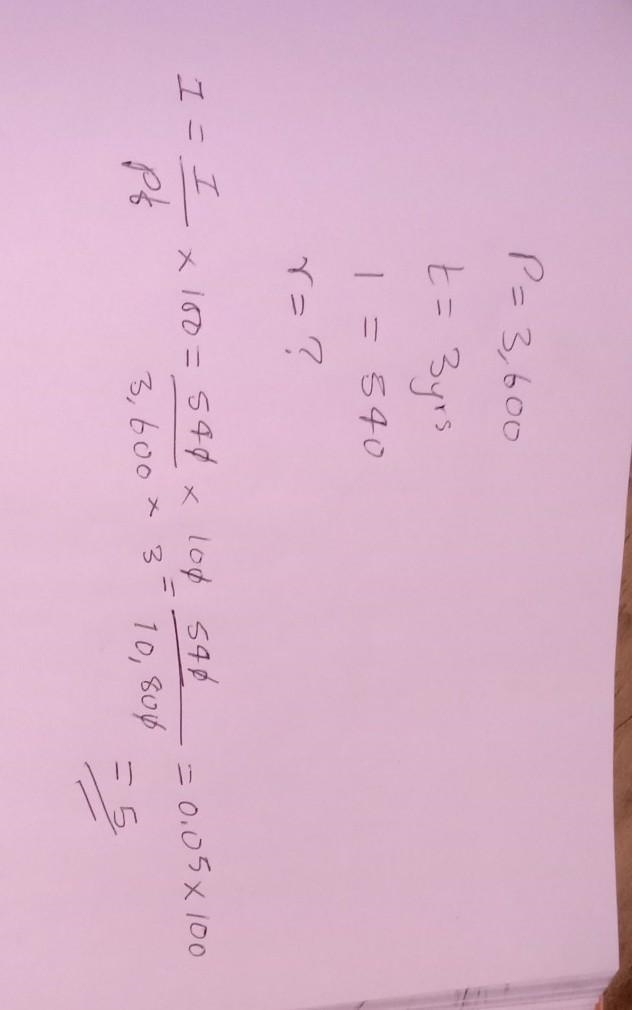 P = 3,600
t = 3yrs
I = 540
r = ?
I = I/Pt × 100 = 540/3,600 × 3 × 100 = 540/10,800 = 0.05 × 100
= 5